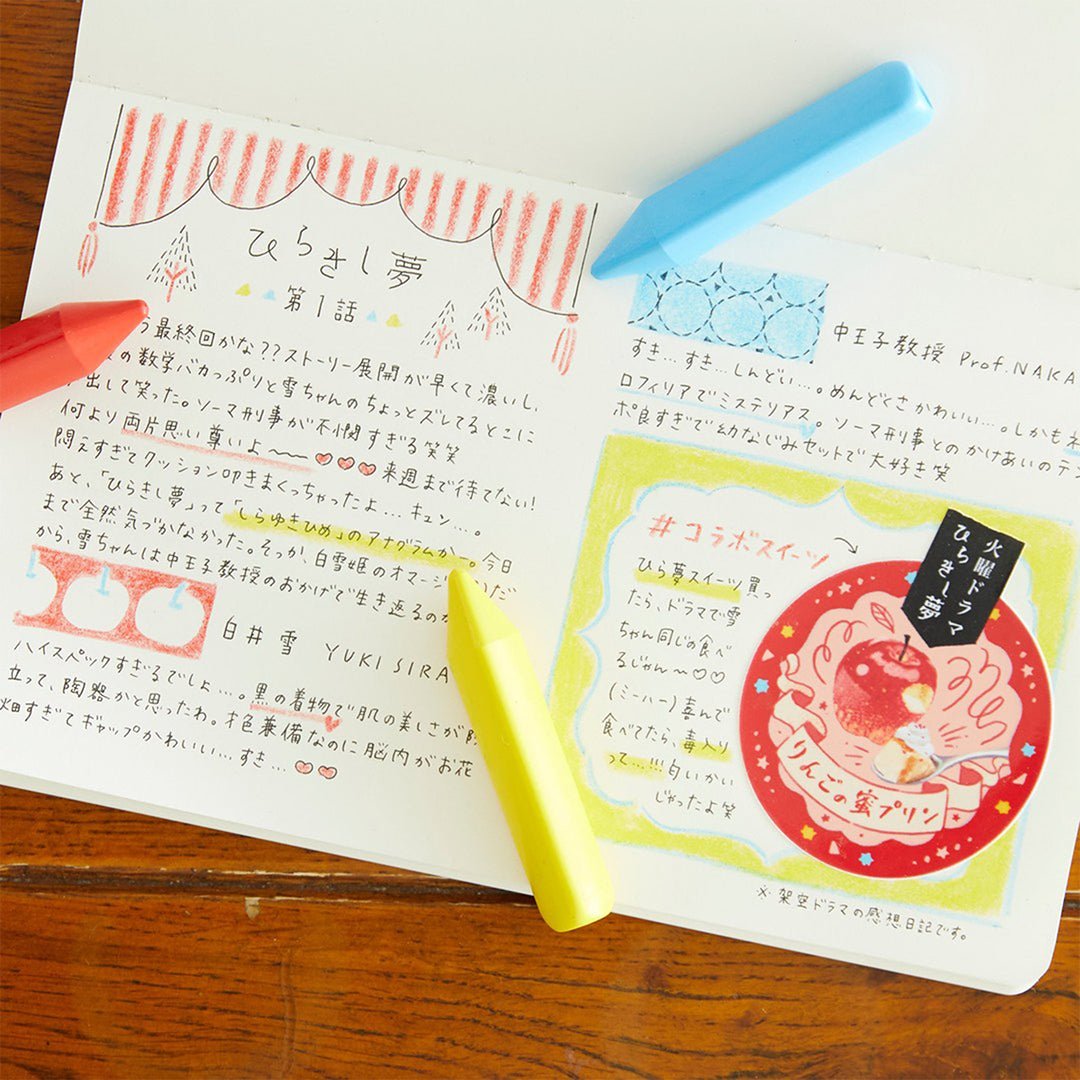 ひらきし夢
第1話
う最終回かな??ストーリー展開が早くて濃いし、
の数学バカっぷりと雪ちゃんのちょっとズレてるとこに
出して笑った。ソーマ刑事が不憫すぎる笑笑
何より両片思い尊いよ〜〜♡♡♡来週まで待てない!
悶えすぎてクッション叩きまくっちゃったよ...キュン...。
あと、「ひらきし夢」って「しらゆきひめ」のアナグラムかー。今日
まで全然気づかなかった。そっか、白雪姫のオマージ だ
から、雪ちゃんは中王子教授のおかげで生き返るのか
白井 雪 YUKI SIRA
ハイスペックすぎるでしょ...。黒の着物で肌の美しさが
立って、陶器かと思ったわ。才色兼備なのに脳内がお花
畑すぎてギャップかわいい...すき...♡♡
中王子教授 Prof.NAKA
すき...すき...しんどい...。めんどくさかわいい...。しかもネ
ロフィリアでミステリアス。ソーマ刑事とのかけあいのテン
ポ良すぎで幼なじみセットで大好き笑
#コラボスイーツ
ひら夢スイーツ買っ
たら、ドラマで雪
ちゃん同じの食べ
るじゃん〜♡♡
(ミーハー)喜んで
食べてたら、毒入り
って...!!!匂いかい
じゃったよ笑
火曜ドラマ
ひらきし夢
りんごの蜜プリン
※架空ドラマの感想日記です。